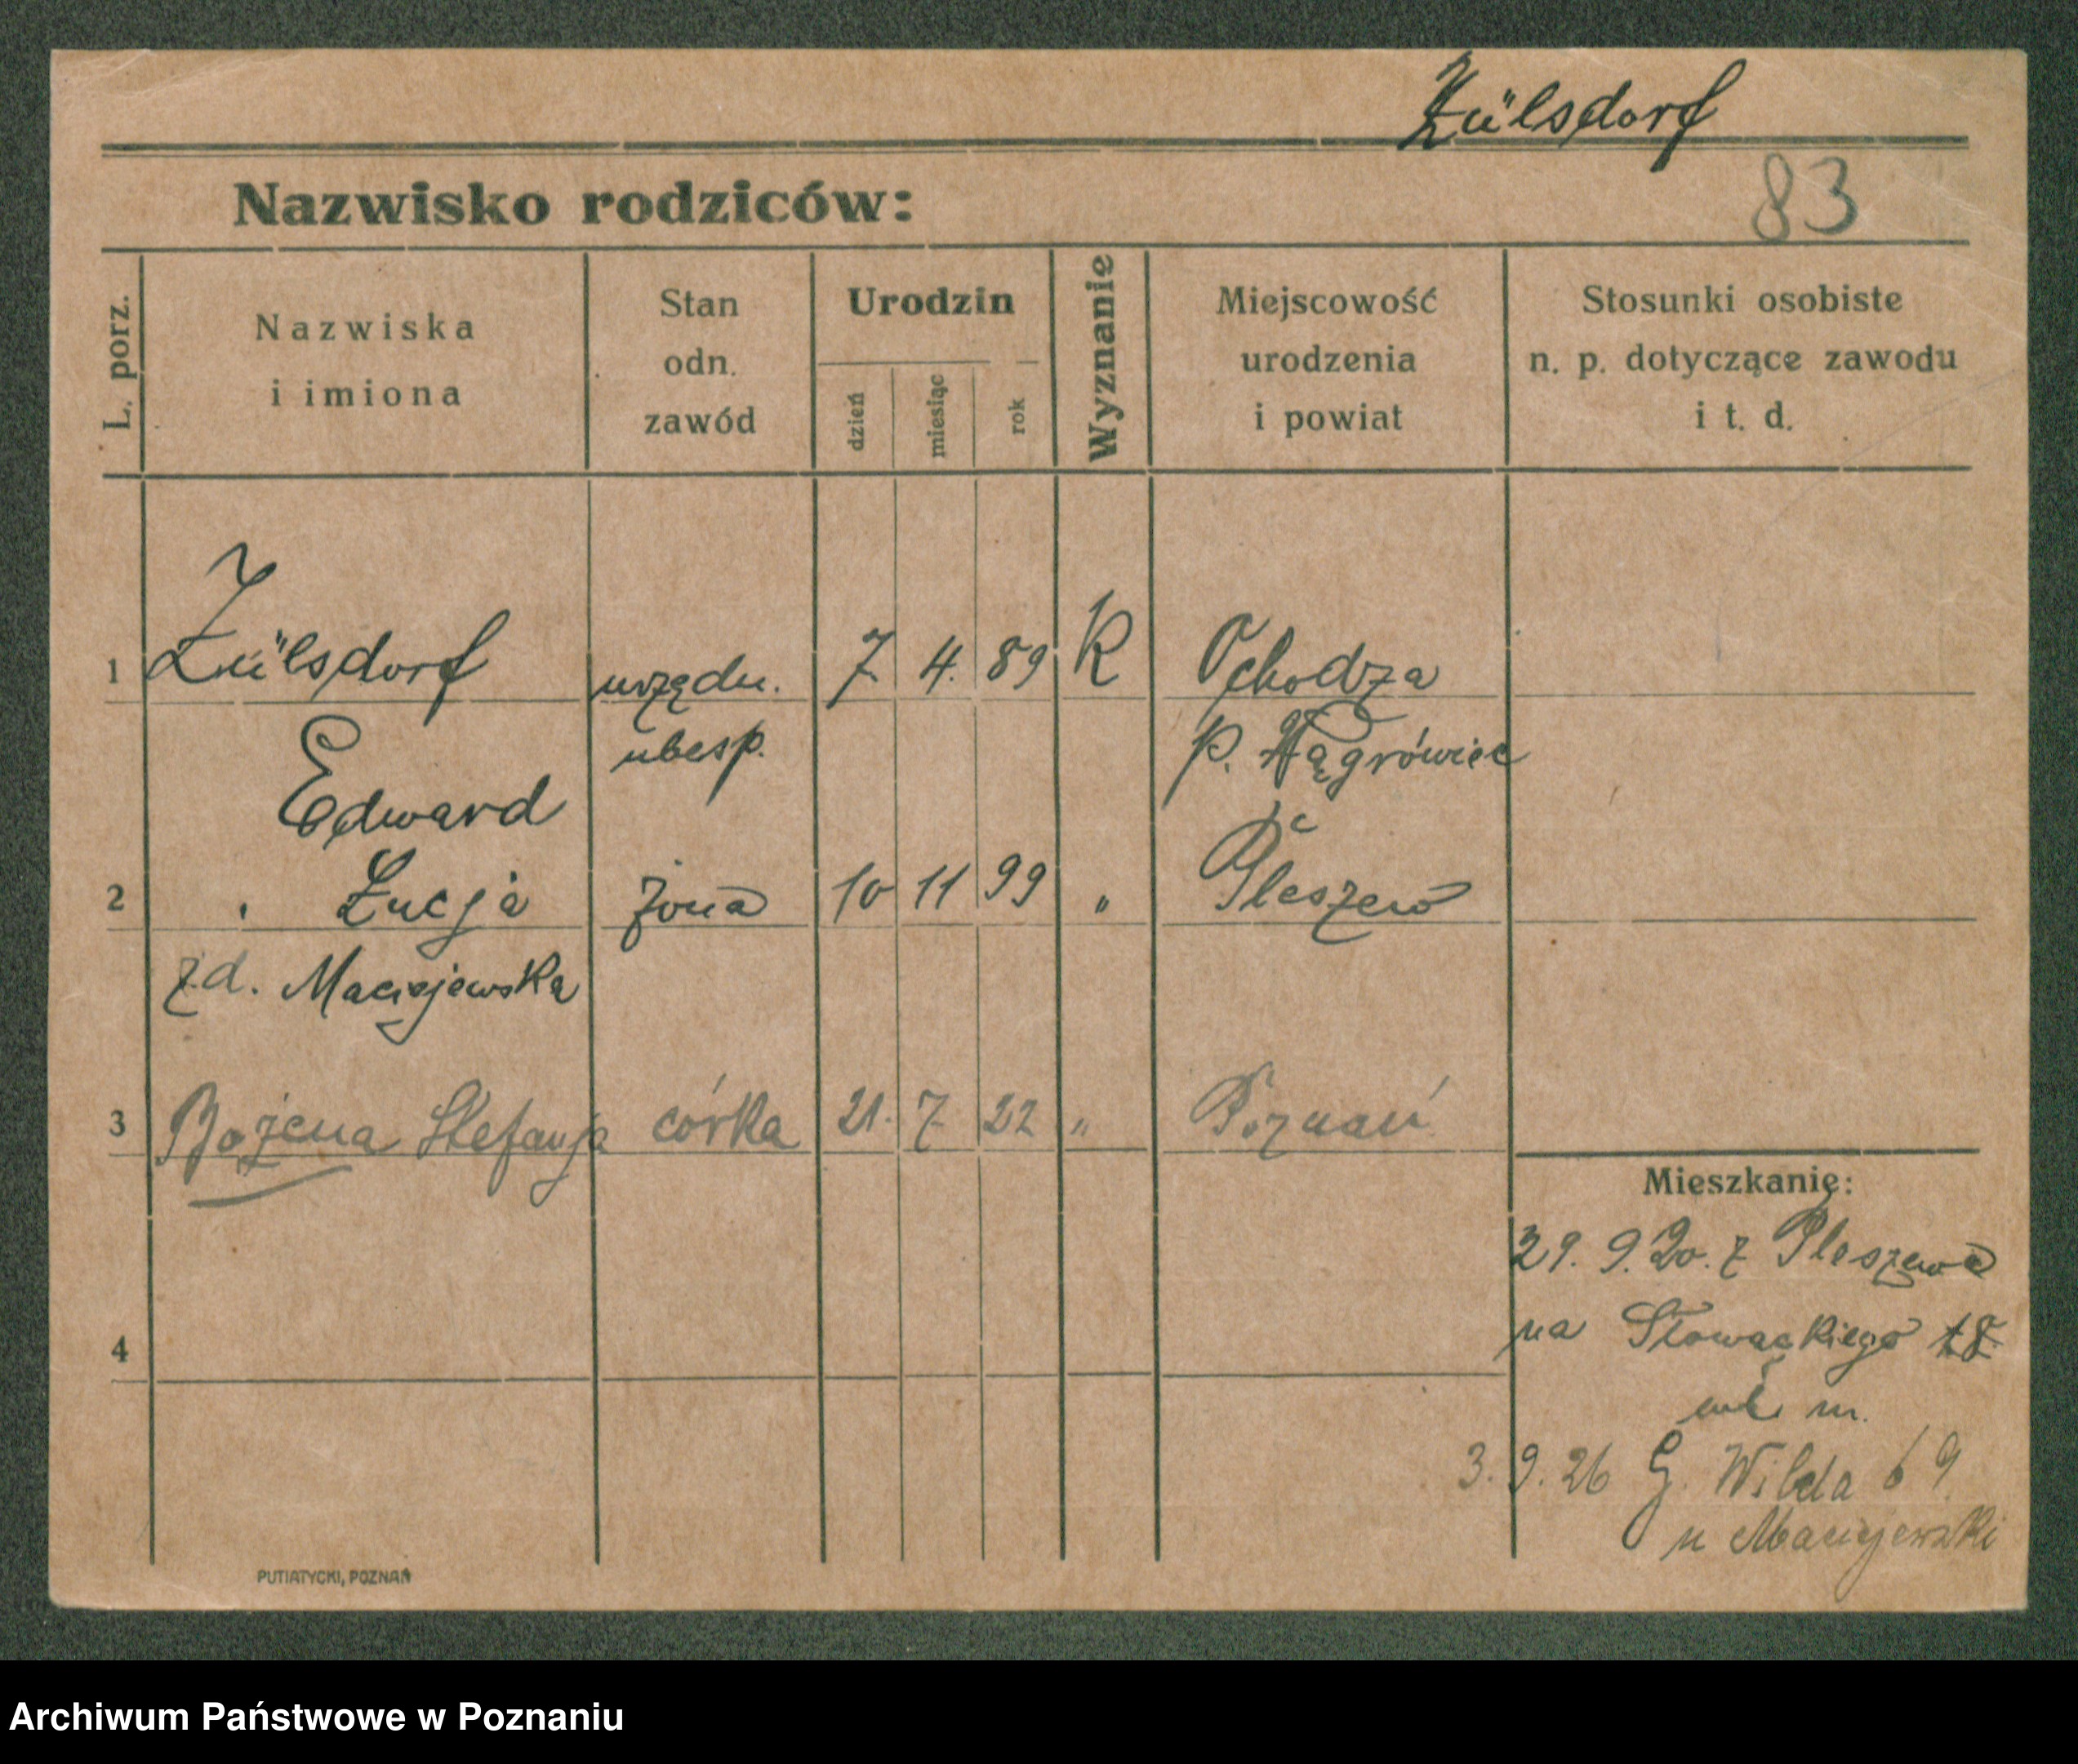 Zülsdorf
Nazwisko rodziców:
83
L. porz.
Nazwiska
i imiona
Stan
odn.
zawód
Urodzin
dzień
miesiąc
rok
Wyznanie
Miejscowość
urodzenia
i powiat
Stosunki osobiste
n. p. dotyczące zawodu
i t. d.
1 Zülsdorf urzędn. 7. 4. 89 K Ochodza
Edward ubesp. p. Wągrówiec
2 Łucja żona 10 11 99 " Pleszew
z d. Maciejewska
3 Bożena Stefanja córka 21. 7 22 " Poznań
Mieszkanie:
29. 9. 20. z Pleszewa
na Słowackiego 18
m.
4
3. 9. 26 G. Wilda 69
u Maciejewski
PUTIATYCKI, POZNAŃ
Archiwum Państwowe w Poznaniu